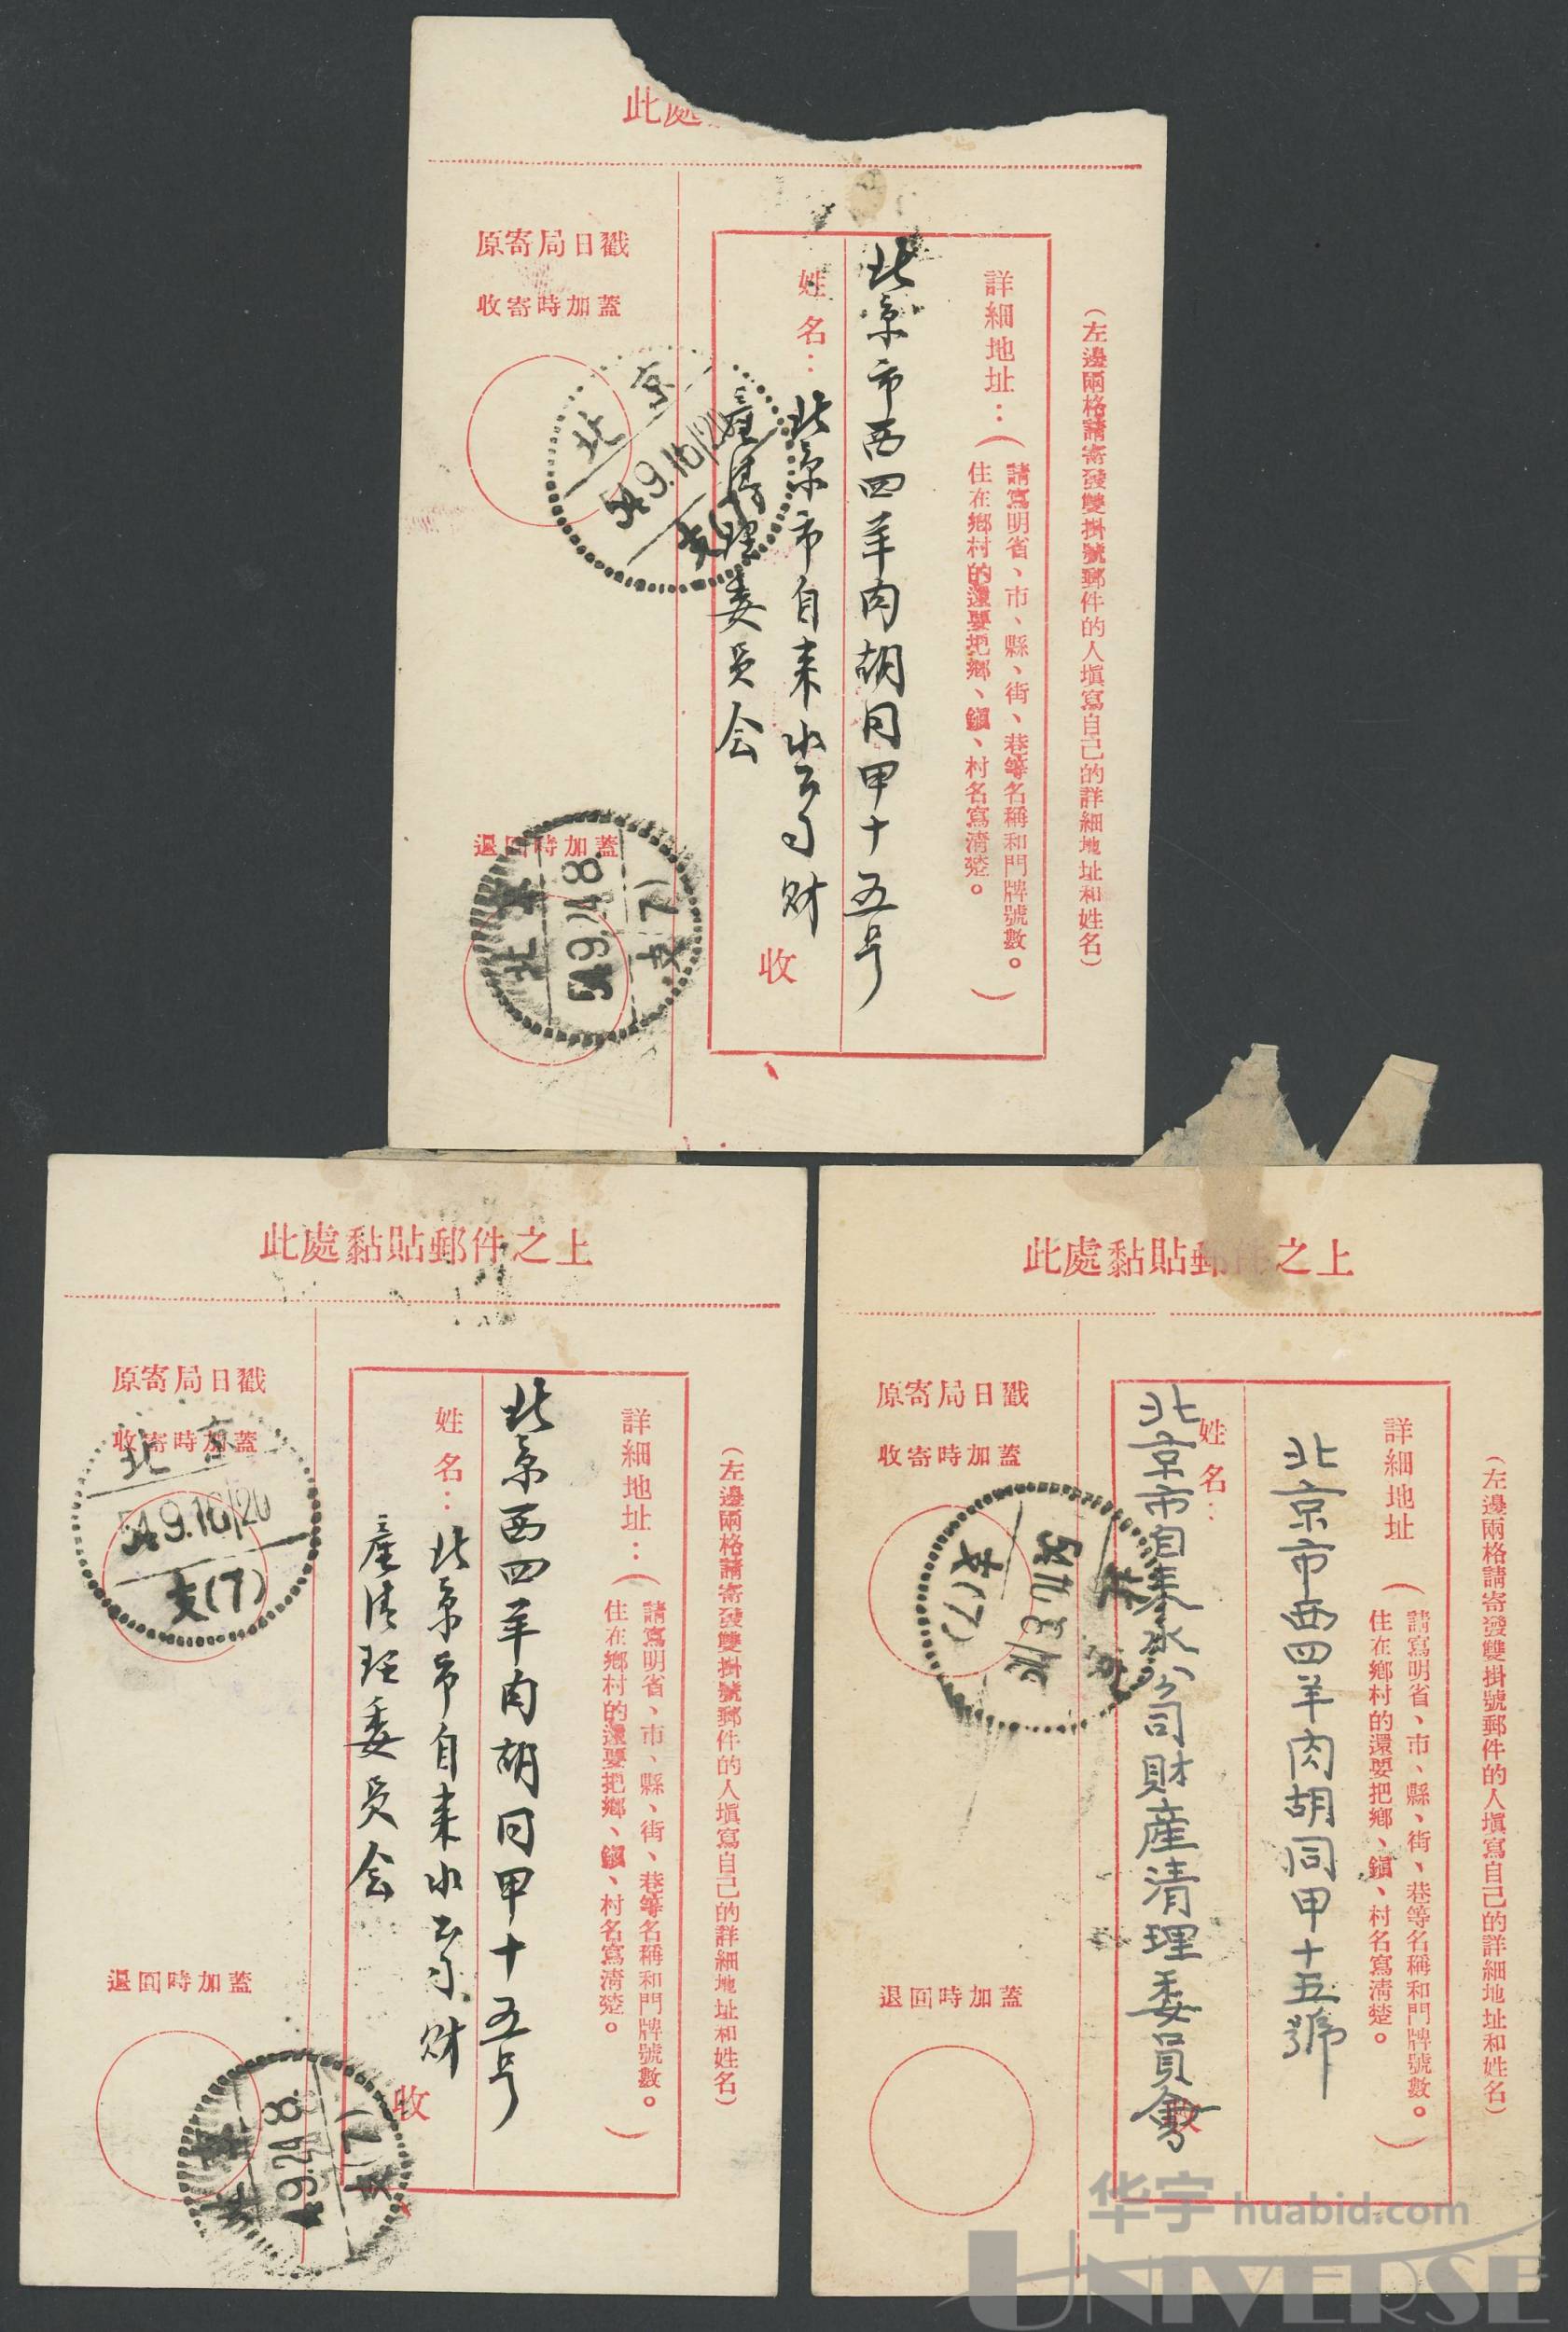 此處
原寄局日戳
收寄時加蓋
北京
54.9.16/20
支(7)
退回時加蓋
北京
54.9.24.8
支(7)
(左邊兩格請寄發雙掛號郵件的人塡寫自己的詳細地址和姓名)
詳細地址：(請寫明省、市、縣、街、巷等名稱和門牌號數。
住在鄉村的還要把鄉、鎭、村名寫清楚。)
北京市西四羊肉胡同甲十五号
姓名：
北京市自来水公司财
產清理委员会
收
此處黏貼郵件之上
原寄局日戳
收寄時加蓋
北京
54.9.16/20
支(7)
退回時加蓋
北京
54.9.24.8
支(7)
(左邊兩格請寄發雙掛號郵件的人塡寫自己的詳細地址和姓名)
詳細地址：(請寫明省、市、縣、街、巷等名稱和門牌號數。
住在鄉村的還要把鄉、鎭、村名寫清楚。)
北京西四羊肉胡同甲十五号
姓名：
北京市自来水公司财
產清理委员会
收
此處黏貼郵件之上
原寄局日戳
收寄時加蓋
北京
支(7)
退回時加蓋
(左邊兩格請寄發雙掛號郵件的人塡寫自己的詳細地址和姓名)
詳細地址(請寫明省、市、縣、街、巷等名稱和門牌號數。
住在鄉村的還要把鄉、鎭、村名寫清楚。)
北京市西四羊肉胡同甲十五號
姓名：
北京市自来水公司財産清理委員會
收
华宇 huabid.com
UNIVERSE